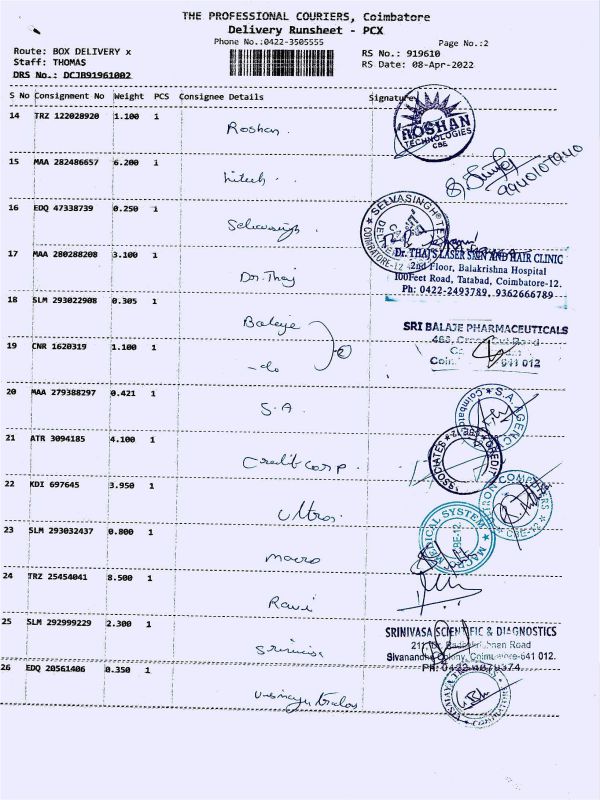 THE PROFESSIONAL COURIERS, Coimbatore
Delivery Runsheet - PCX
Phone No.:0422-3505555
Page No.:2
Route: BOX DELIVERY x
RS No.: 919610
Staff: THOMAS
RS Date: 08-Apr-2022
DRS No.: DCJB91961002
S No Consignment No Weight PCS Consignee Details Signature
14 TRZ 122028920 1.100 1 Roshan
ROSHAN TECHNOLOGIES CBE
15 MAA 282486657 6.200 1 hitech
16 EDQ 47338739 0.250 1 Selvasingh
SELVASINGH
COIMBATORE-12
17 MAA 280288208 3.100 1 Dr. Thaj
Dr. THAJ'S LASER SKIN AND HAIR CLINIC
2nd Floor, Balakrishna Hospital
100Feet Road, Tatabad, Coimbatore-12.
Ph: 0422-2493789, 9362666789
18 SLM 293022908 0.305 1 Balaje
SRI BALAJE PHARMACEUTICALS
641 012
19 CNR 1620319 1.100 1 -do
20 MAA 279388297 0.421 1 S.A
21 ATR 3094185 4.100 1 Creditcorp
22 KDI 697645 3.950 1
CBE-12
23 SLM 293032437 0.800 1 macro
MEDICAL SYSTEM
CBE-12
24 TRZ 25454041 8.500 1 Ravi
25 SLM 292999229 2.300 1
SRINIVASA SCIENTIFIC & DIAGNOSTICS
Colony, Coimbatore-641 012.
26 EDQ 20561406 0.350 1